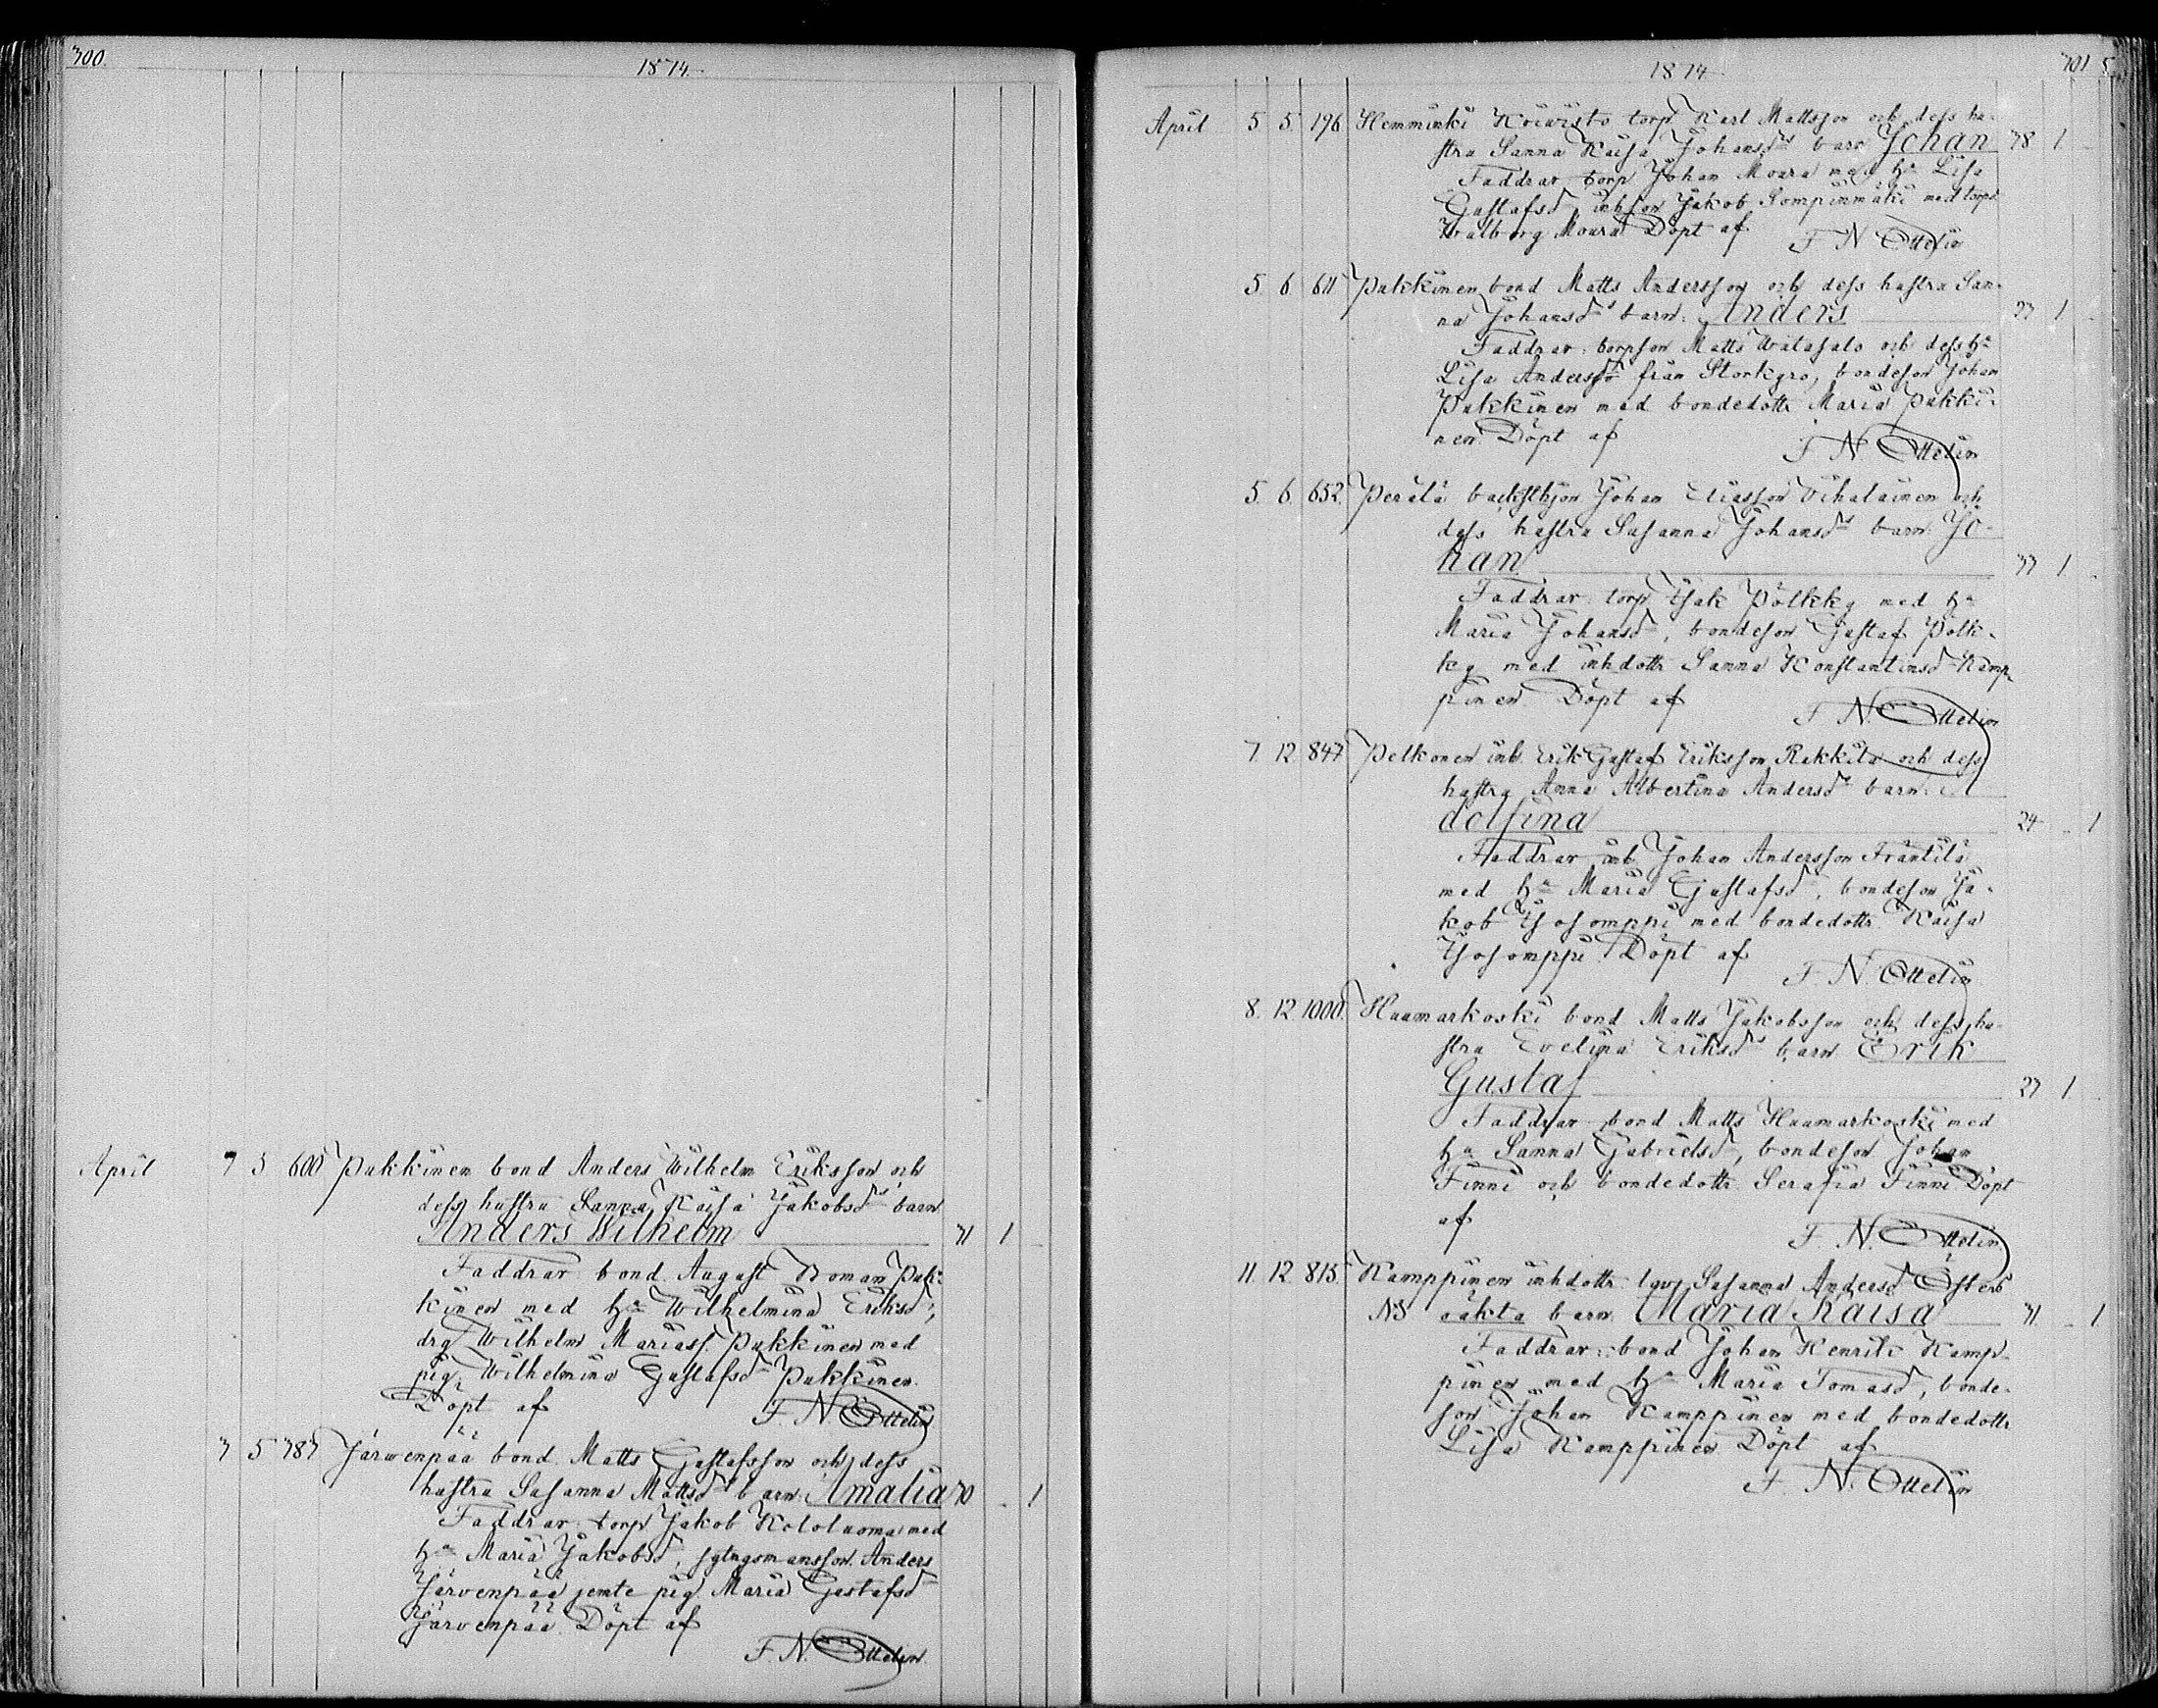 300.
1874.
April 3 5 600 Pukkinen bond Anders Wilhelm Eriksson och
dess hustru Sanna Kaisa Jakobsds barn
Anders Wilhelm 31 1
Faddrar: bond August Roman Puk-
kinen med ha Wilhelmina Eriksd,
drg Wilhelm Mariass. Pukkinen med
pig. Wilhelmina Gustafsd Pukkinen.
Döpt af F. N. Ottelin
3 5 787 Järwenpää bond. Matts Gustafsson och dess
hustru Susanna Mattsds barn: Amalia 30 1
Faddrar: torp Jakob Kololuoma med
ha Maria Jakobsd, sytngsmansson Anders
Järvenpää jemte pig. Maria Gustafsd
Järvenpää. Döpt af
F. N. Ottelin
1874
301
April 5 5 196 Hemminki Koivisto torp Karl Mattsson och dess hu-
stru Sanna Kaisa Johansds barn Johan 38 1
Faddrar torp Johan Moara med ha Lisa
Gustafsd, inhson Jakob Sompinmäki med torpd
Walborg Moara Döpt af F N Ottelin
5. 6. 611 Pukkinen bond Matts Andersson och dess hustru San-
na Johansds barn: Anders 33 1
Faddrar: torpson Matts Watasalo och dess ha
Lisa Andersd från Storkyro, bondeson Johan
Pukkinen med bondedottr Maria Pukki-
nen. Döpt af F N Ottelin
5. 6. 652. Perälä backsthjon Johan Eliasson Vihalainen och
dess hustru Susanna Johansds barn Jo-
han 33 1
Faddrar: torp Isak Pölkky med ha
Maria Johansd, bondeson Gustaf Pölk-
ky med inhdottr Sanna Konstantinsd Kamp-
pinen. Döpt af F. N. Ottelin
7. 12. 847 Pelkonen inh. Erik Gustaf Eriksson Rekkila och dess
hustru Anna Albertina Andersds barn: A
dolfina 24 1
Faddrar inh Johan Andersson Franttila
med ha Maria Gustafsd, bondeson Ja-
kob Isosomppi med bondedottr Kaisa
Isosomppi. Döpt af F. N. Ottelin
8. 12. 1000. Haamarkoski bond Matts Jakobsson och dess hu-
stru Evelina Eriksds barn Erik
Gustaf 23 1
Faddrar bond Matts Haamarkoski med
ha Sanna Gabrielsd, bondeson Johan
Finni och bondedottr Serafia Finni Döpt
af F. N. Ottelin
11. 12. 815. Kamppinen inhdottr lqv. Susanna Andersd Österb
NB oäkta barn Maria Kaisa 31 1
Faddrar: bond Johan Henrik Kamp-
pinen med ha Maria Tomasd, bonde-
son Johan Kamppinen med bondedottr
Lisa Kamppinen Döpt af
F. N. Ottelin